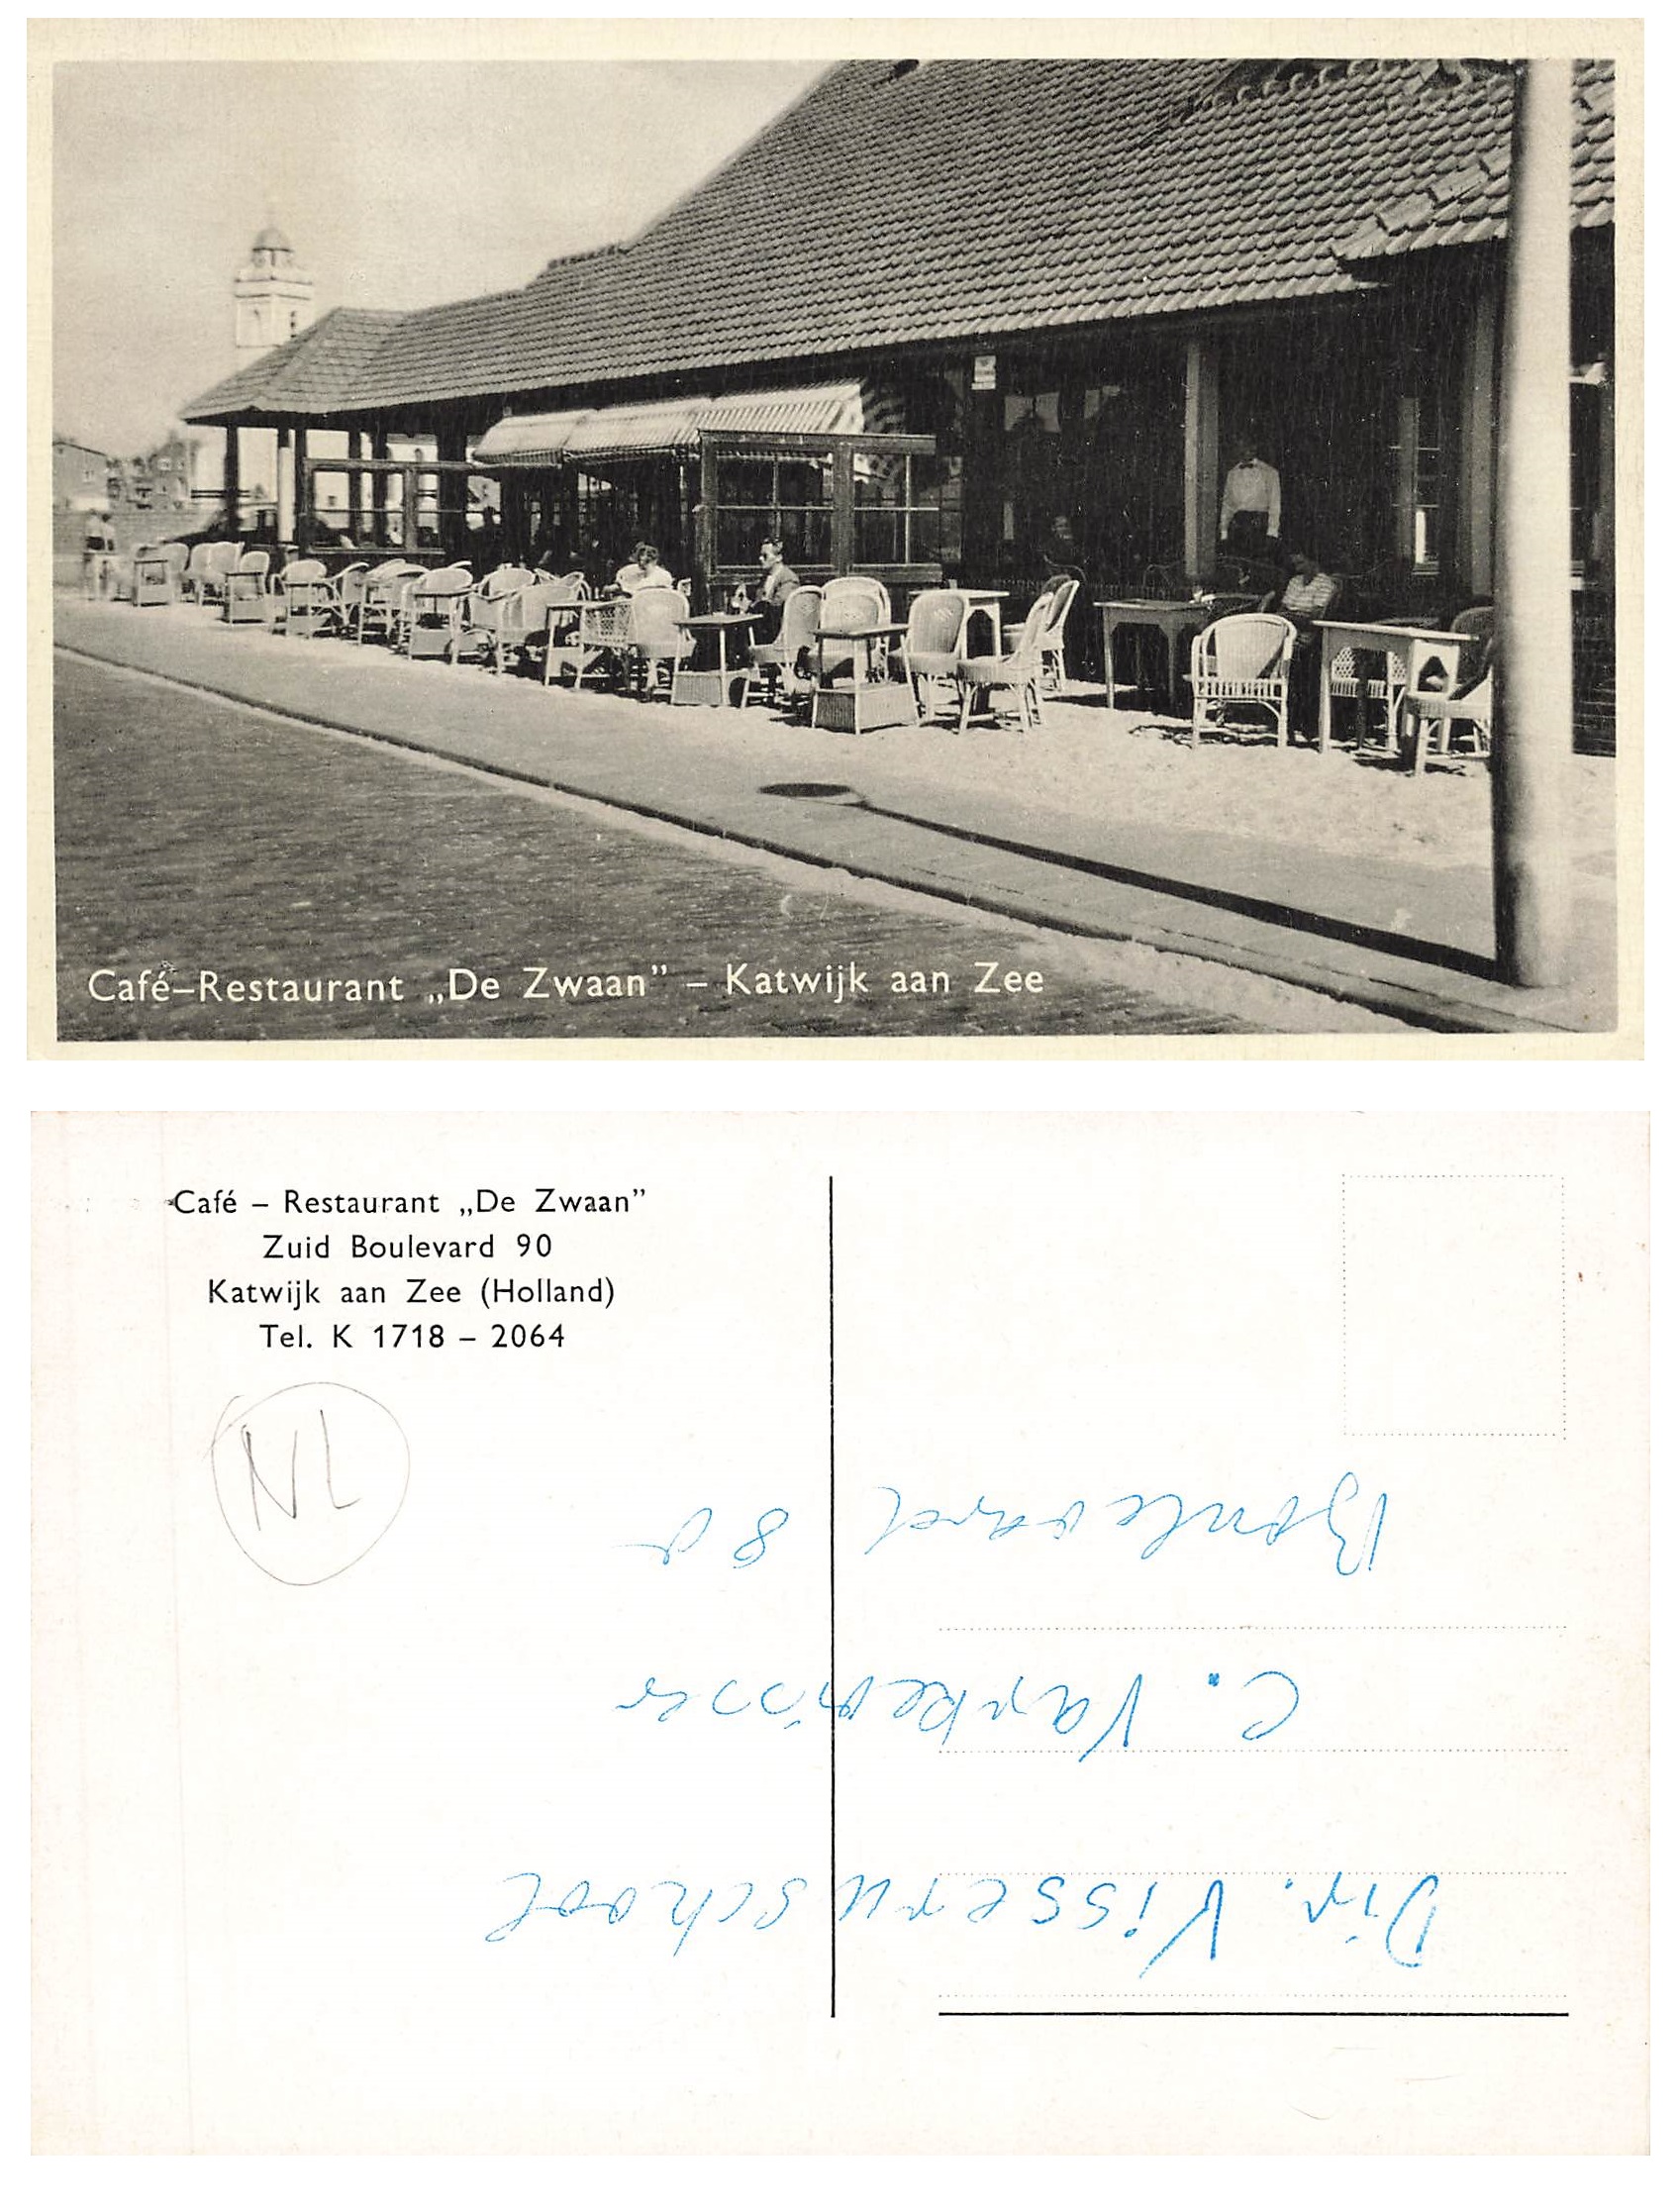 Café–Restaurant „De Zwaan” – Katwijk aan Zee
Café – Restaurant „De Zwaan”
Zuid Boulevard 90
Katwijk aan Zee (Holland)
Tel. K 1718 – 2064
NL
Dir. Visserijschool
C. Varkevisser
Boulevard 80